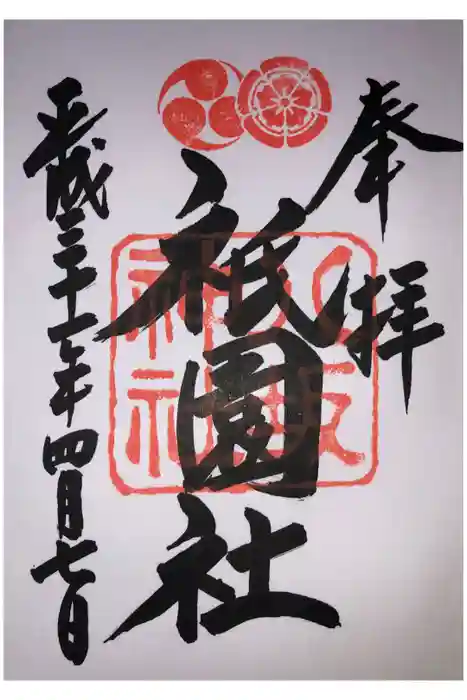 奉拝
祇園社
八坂神社
平成三十一年四月七日